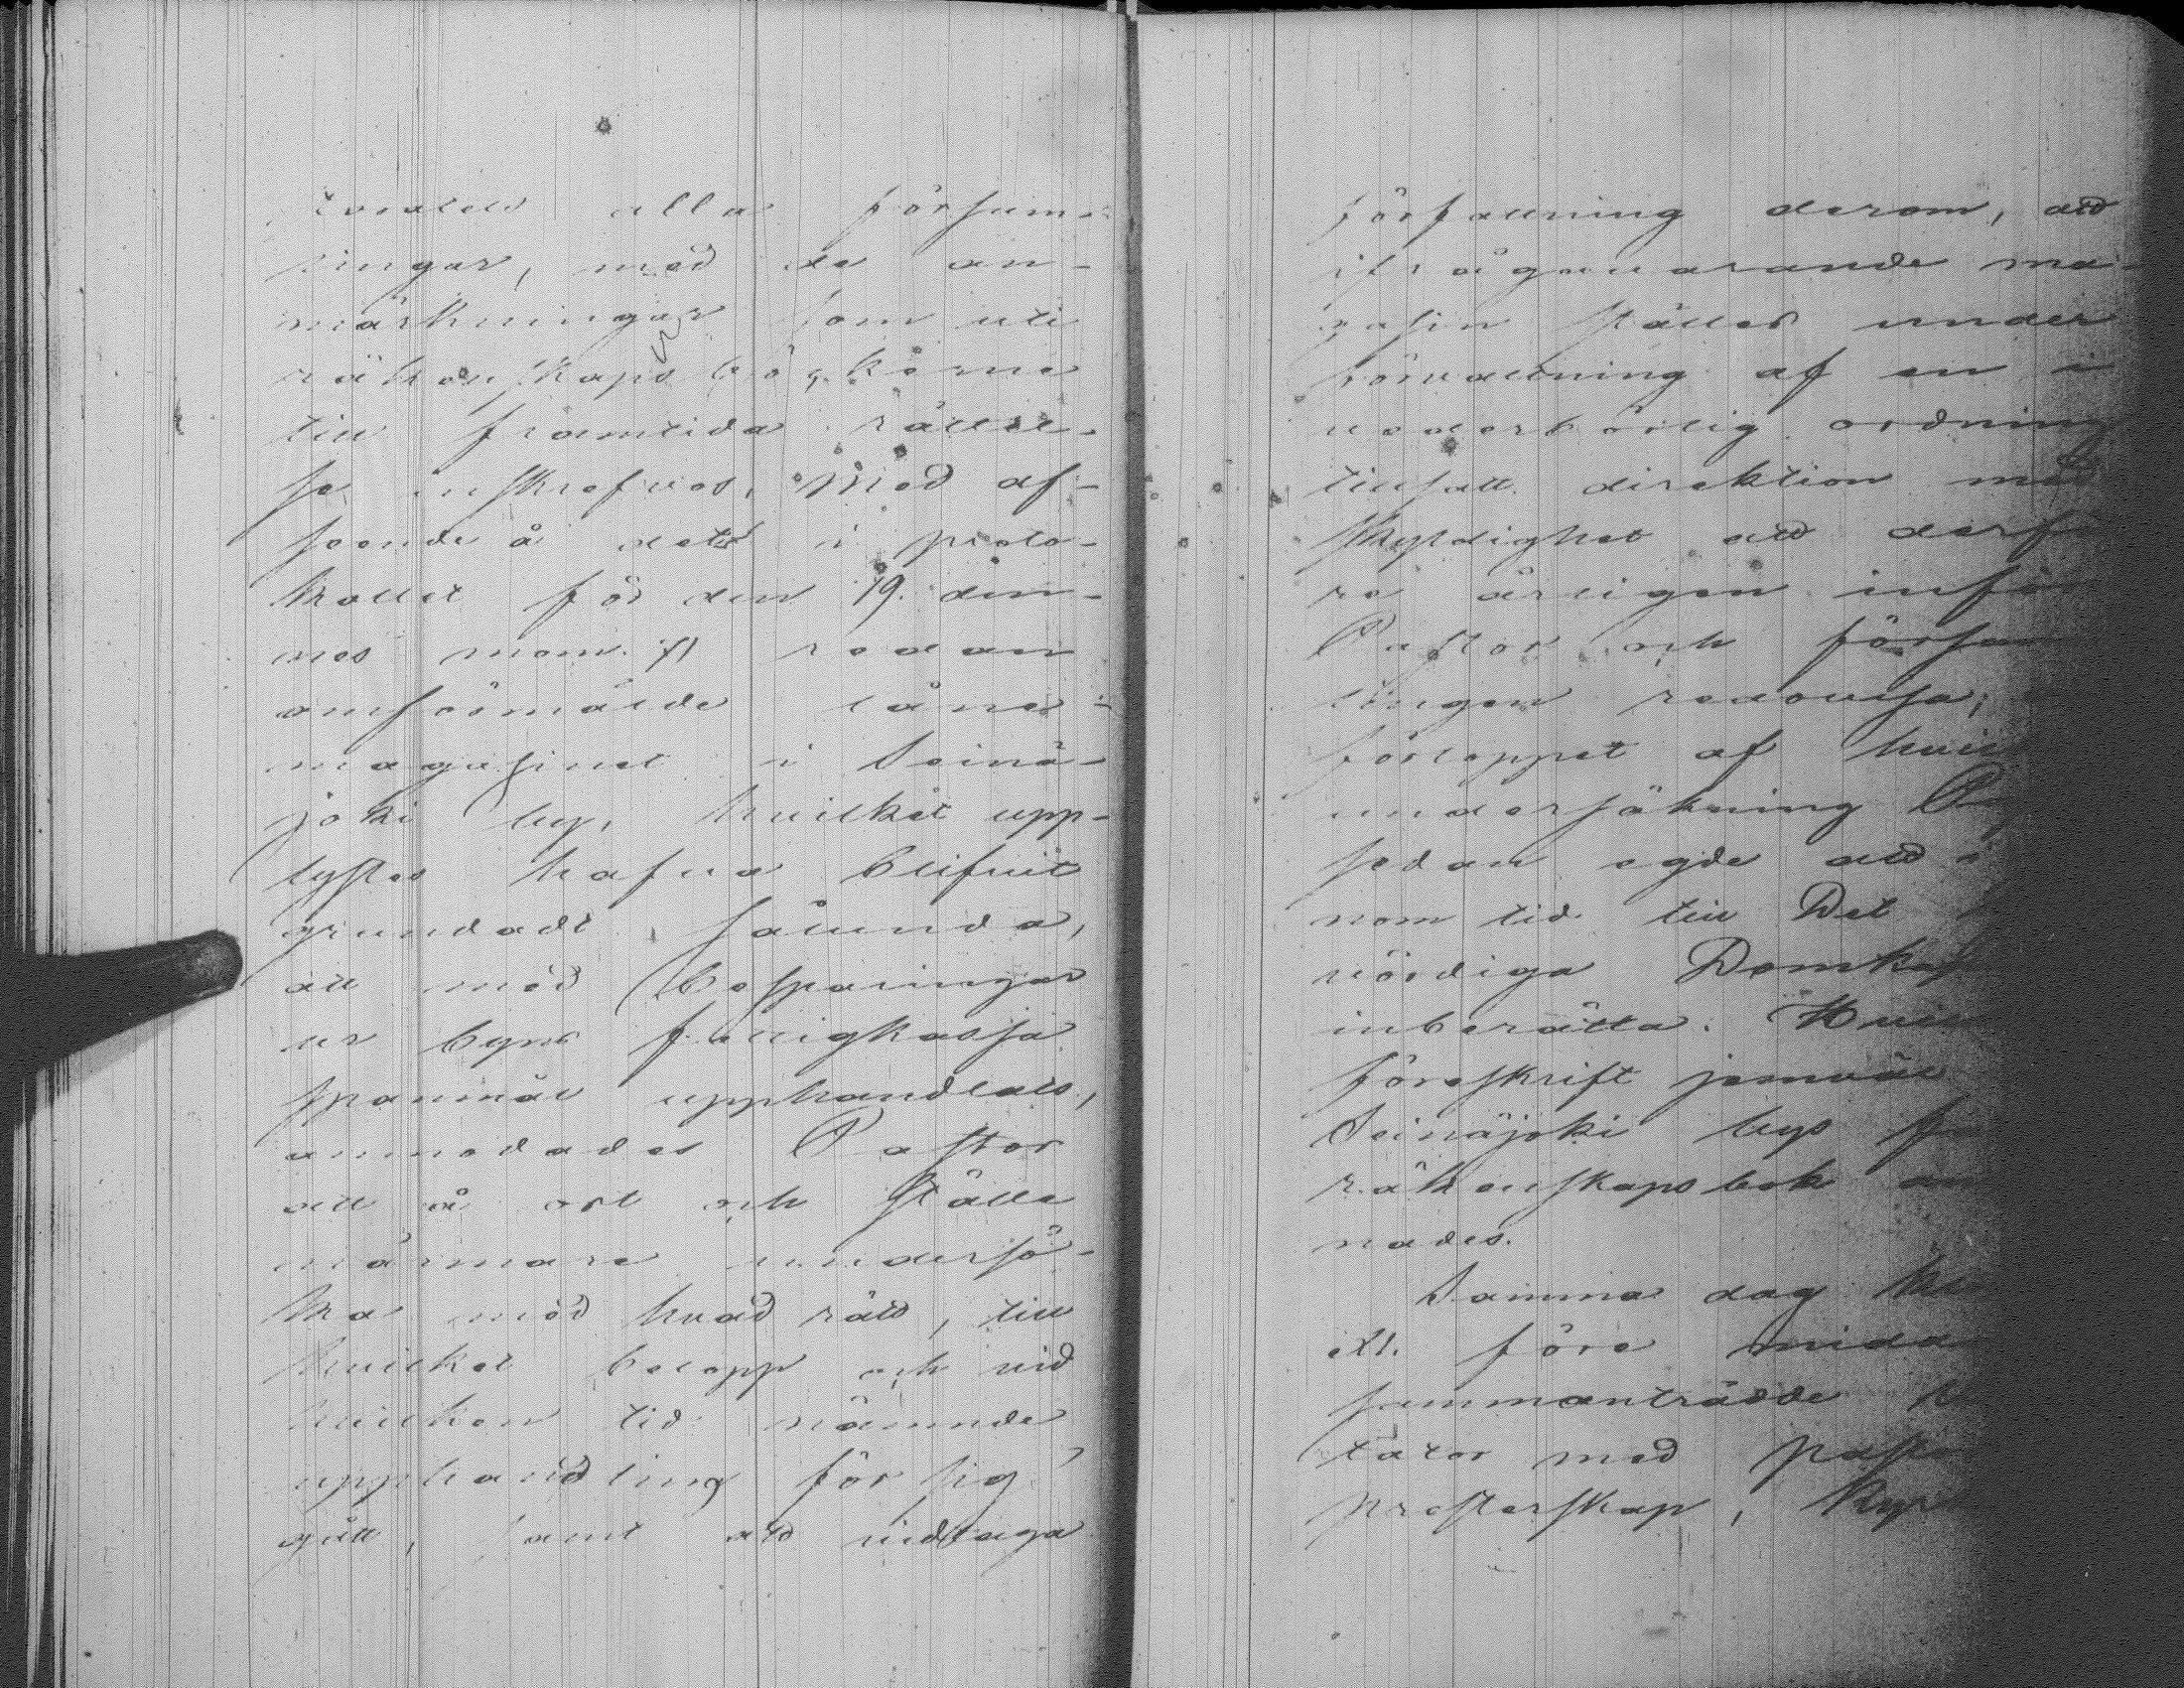 alla församl-
lingar, med de an-
märkningar som uti
räkenskapsböckerna
till framtida rättel-
se inskrefvos. Med af-
seende å dett i proto-
kollet för den 19. den-
nes mom. 71 redan
omförmälde låne-
magasinet i Seinä-
joki by, hvilket upp-
lystes hafva blifvit
grundadt sålunda,
att med besparingar
ur byns fattigkassa
spanmål upphandlats,
anmodades Pastor
att å ort och ställe
närmare undersö-
ka med hvad rätt, till
hvilket belopp och vid
hvilken tid nämnde
upphandling för sig
gått, samt att vidtaga
författning derom, att
ifrågavarande ma-
gasin ställes under
förvaltning af en i
vederbörlig ordning
tillsatt direktion med
skyldighet att derf
re årligen inför
Pastor och försam
lingen redovisa;
förloppet af hvil
undersökning P
sedan egde att i
nom tid till Det
vördiga Domkap
inberätta. Hvil
föreskrift jemväl
Seinäjoki bys
räkenskapsbok an
nades.
Samma dag kl
ell. före midd
sammanträdde
tator med pasto
presterskap, kyr